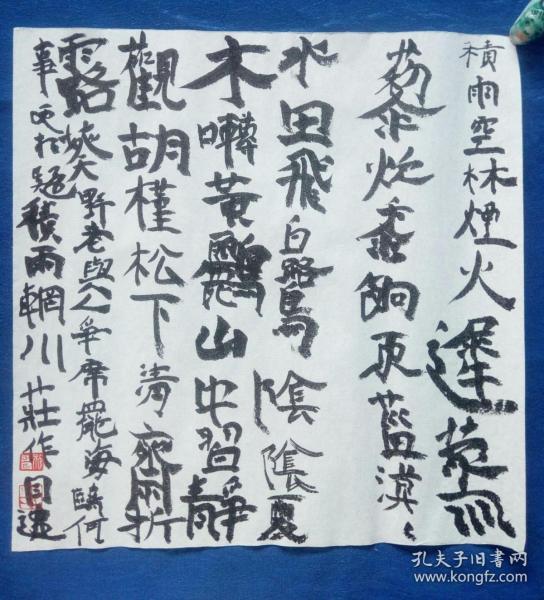 積雨空林煙火遲蒸
藜炊黍餉東菑漠々
水田飛白鷺陰陰夏
木囀黃鸝山中習靜
觀朝槿松下清齋折
露葵野老與人爭席罷海鷗何
事更相疑積雨輞川莊作
孔夫子旧书网
www.kongfz.com